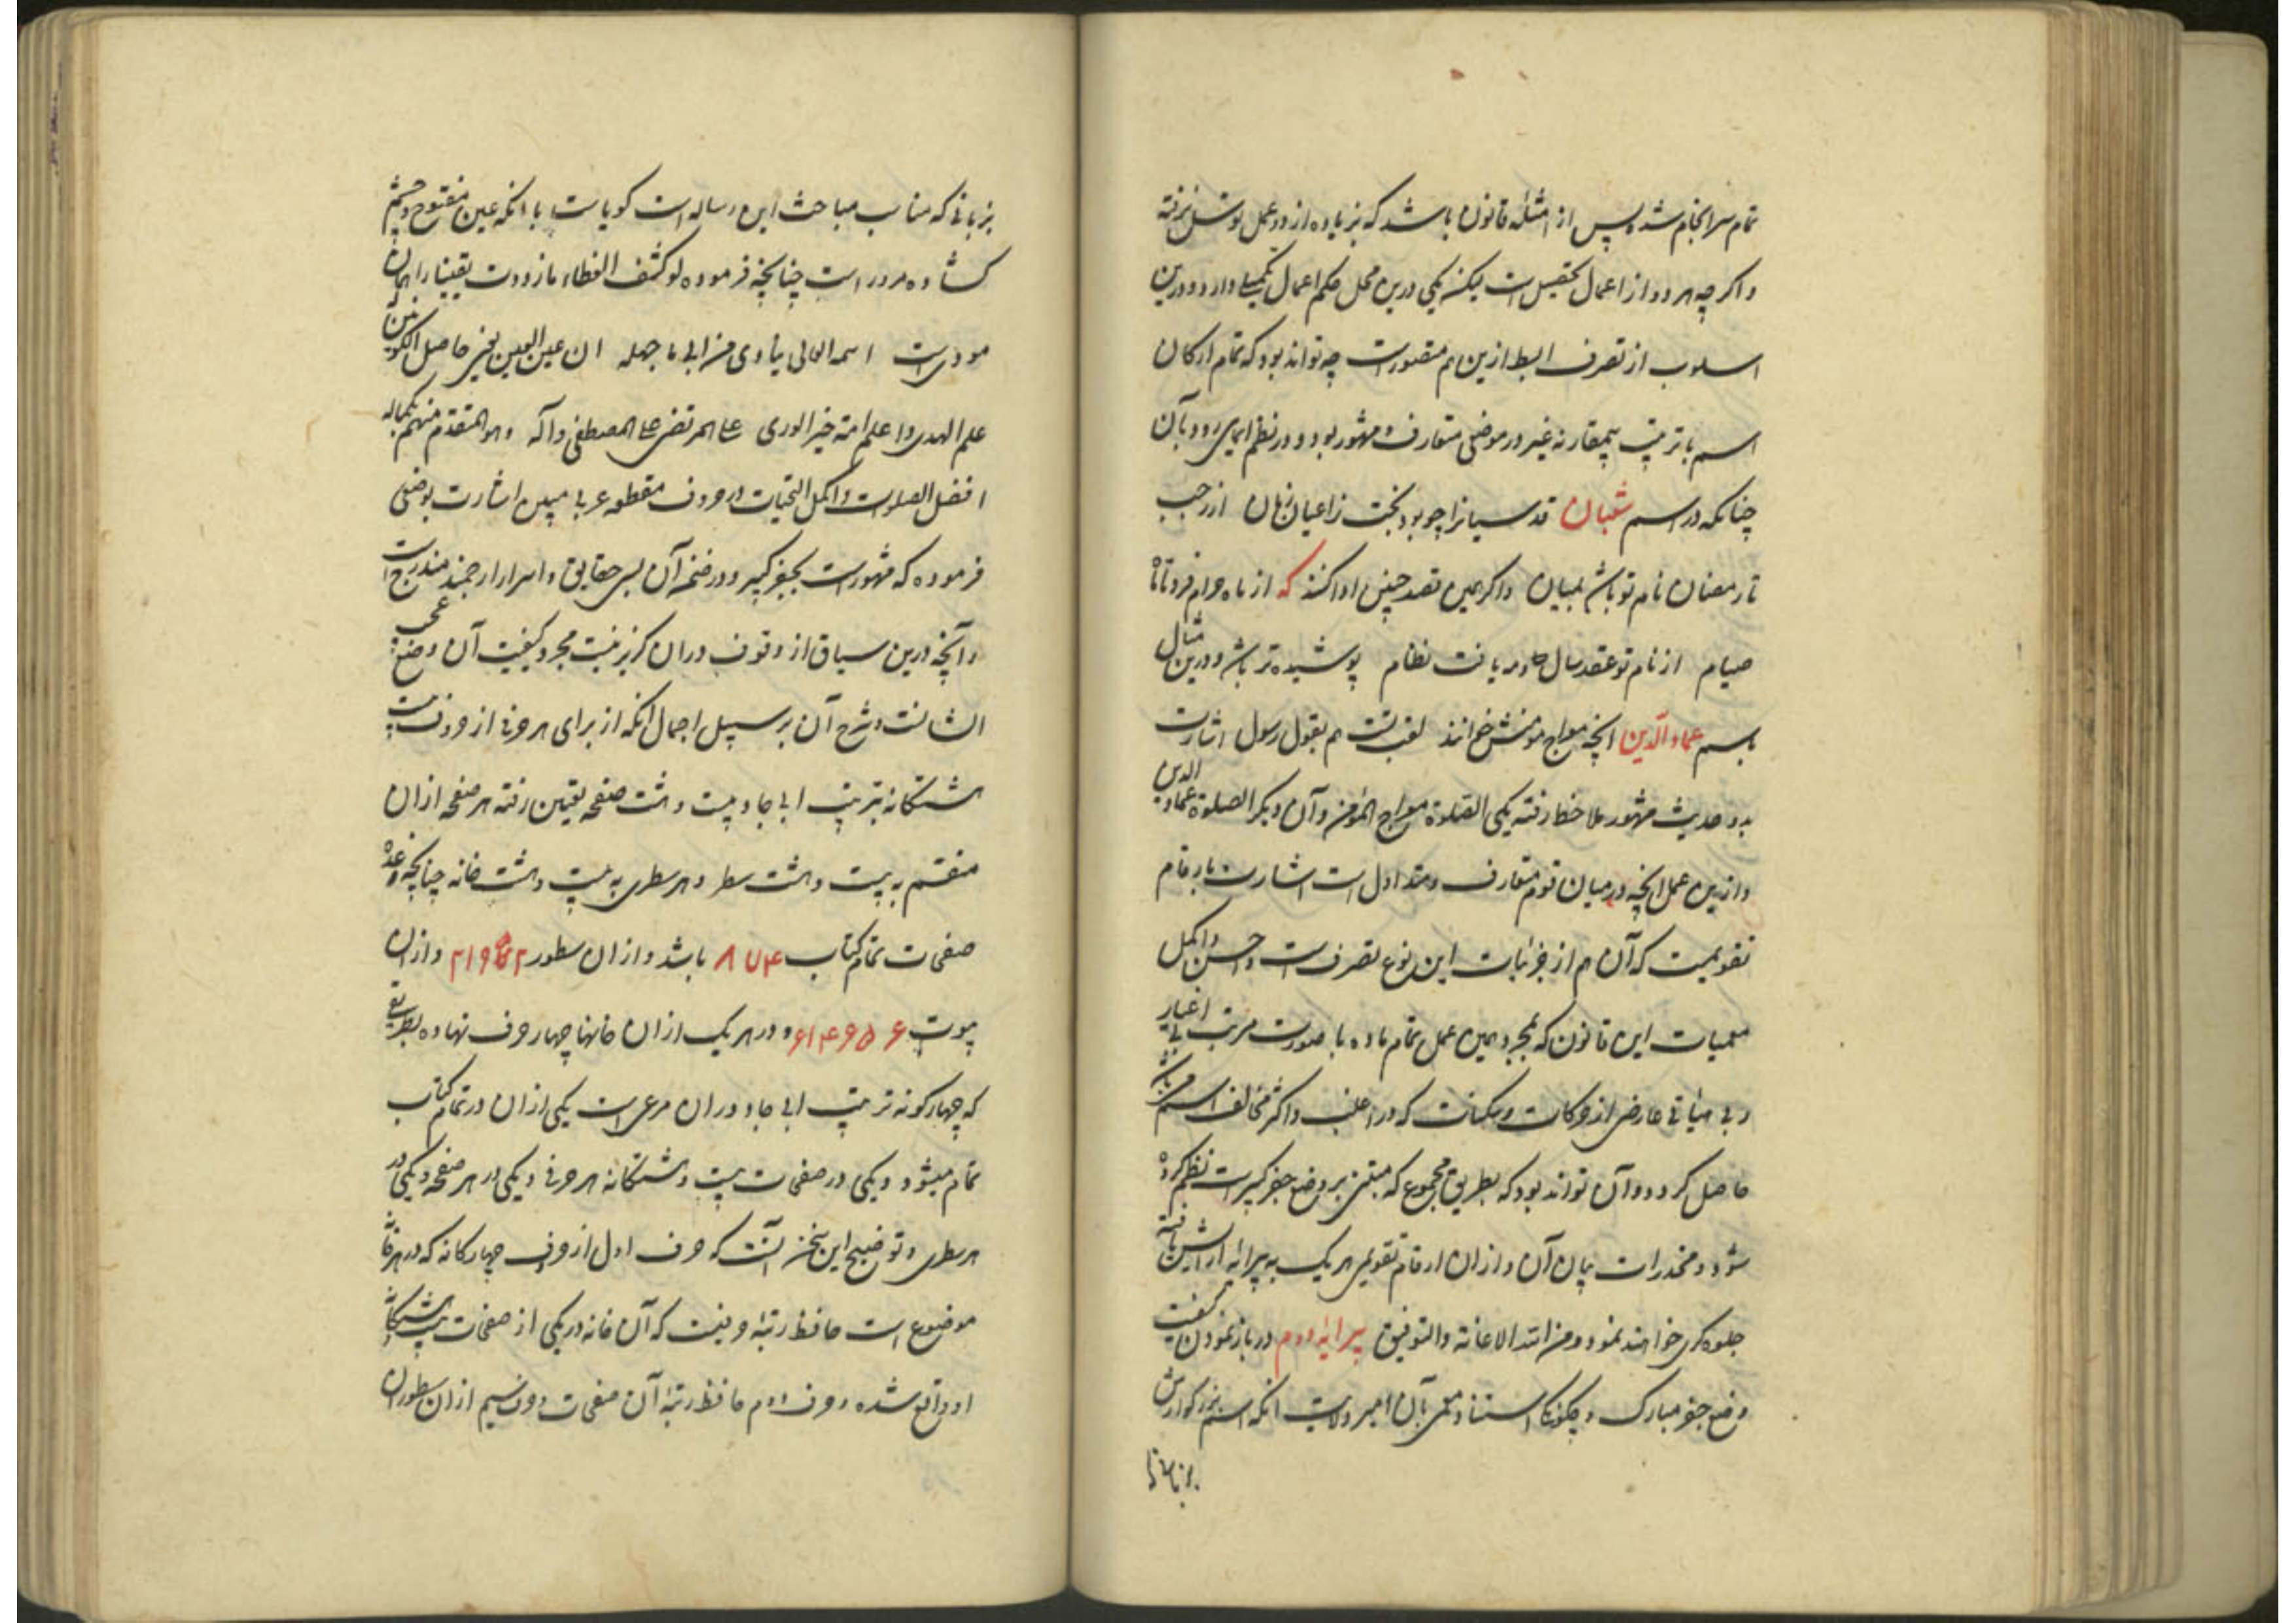 تمام سرانجام شد پس از امثلهٔ قانون باشد که بزیاده از دو عمل توسل نرفته
واکرچه هر دو از اعمال تحصیلیست لیکن یکی درین محل حکم اعمال تکمیلی دارد و درین
اسلوب از تصرف ابسط ازین هم متصورست چه تواند بود که تمام ارکان
اسم با ترتیب بیمقارنه غیر در موضعی متعارف و مشهور بود و در نظم ایمای رود بآن
چنانکه در اسم شعبان قدسیانرا چو بود بخت ز اعیان زمان از رجب
تا رمضان نام تو باشد بمیان واکر همین قصد چنین ادا کنند که از ماه حرام فرد تا ماه
صیام از نام تو عقد سال و مه یافت نظام پوشیده تر باشد و درین مثال
باسم عماد الدین انچه معراج مومنش خوانند لقب تست هم بقول رسول اشارت
بدو حدیث مشهور ملاحظه رفته یکی الصلوة معراج المؤمن وآن دیکر الصلوة عماد الدین
وازین عمل انچه در میان قوم متعارف و متداول است اشارت بارقام
تقویمیست که آن هم از جزئیات این نوع تصرف است واحسن واکمل
معمیات این قانون که بمجرد همین عمل تمام ماده با صورت مرتب بی اغیار
و بی هیأتی عارضی از حرکات و سکنات که در اغلب واکثر مخالف اسم می باشد
حاصل کردد و آن تواند بود که بطریق مجموع که مبتنی بر وضع جفر کبیرست نظم کرده
شود و مخدرات بیان آن وازان ارقام تقویمی هریک به پیرایه آرایش یافته
جلوه کری خواهند نمود و من الله الاعانة والتوفیق پیرایه دوم در باز نمودن کیفیت
وضع جفر مبارک و چکونکی استناد معمی بآن امیر ولایت انکه اسم بزرکوارش
بزبانی
بزبانی که مناسب مباحث این رساله است کویاست با انکه عین مفتوح و چشم
کشاده مر دراست چنانچه فرموده لو کشف الغطاء ما زددت یقینا را همان
مودیست اسمه العالی ینادی من ابی ما جهله ان عین العین بخیر حاصل الکونین
علم الهدی واعلم امته خیر الوری علی المرتضی علی المصطفی وآله وهو المقدم منهم بکماله
افضل الصلوات واکمل التحیات در حروف مقطعه عربی مبین اشارت بوضعی
فرموده که مشهورست بجفر کبیر و در ضمن آن بسی حقایق واسرار ارجمند مندرجست
وآنچه درین سیاق از وقوف دران کزیر نیست مجرد کیفیت آن وضع عجیب
الشانست و شرح آن بر سبیل اجمال انکه از برای هر حرفی از حروف بیست
هشتکانه بترتیب ابی جاد بیست و هشت صفحه تعیین رفته هر صفحه ازان
منقسم به بیست و هشت سطر و هر سطری به بیست و هشت خانه چنانچه عدد
صفحات تمام کتاب ۷۸۴ باشد وازان سطور ۲۱۹۵۲ وازان
بیوت ۶۱۴۶۵۶ و در هر یک ازان خانها چهار حرف نهاده بطریقی
که چهار کونه ترتیب ابی جاد دران مرعی است یکی ازان در تمام کتاب
تمام میشود و یکی در صفحات بیست و هشتکانه هر حرفی و یکی در هر صفحه و یکی در
هر سطری و توضیح این سخن آنست که حرف اول از حروف چهارکانه که در هر خانه
موضوع است حافظ رتبهٔ حرفیست که آن خانه در یکی از صفحات بیست هشتکانه
او واقع شده و حرف دوم حافظ رتبهٔ آن صفحات و حرف سیم ازان سطور ان